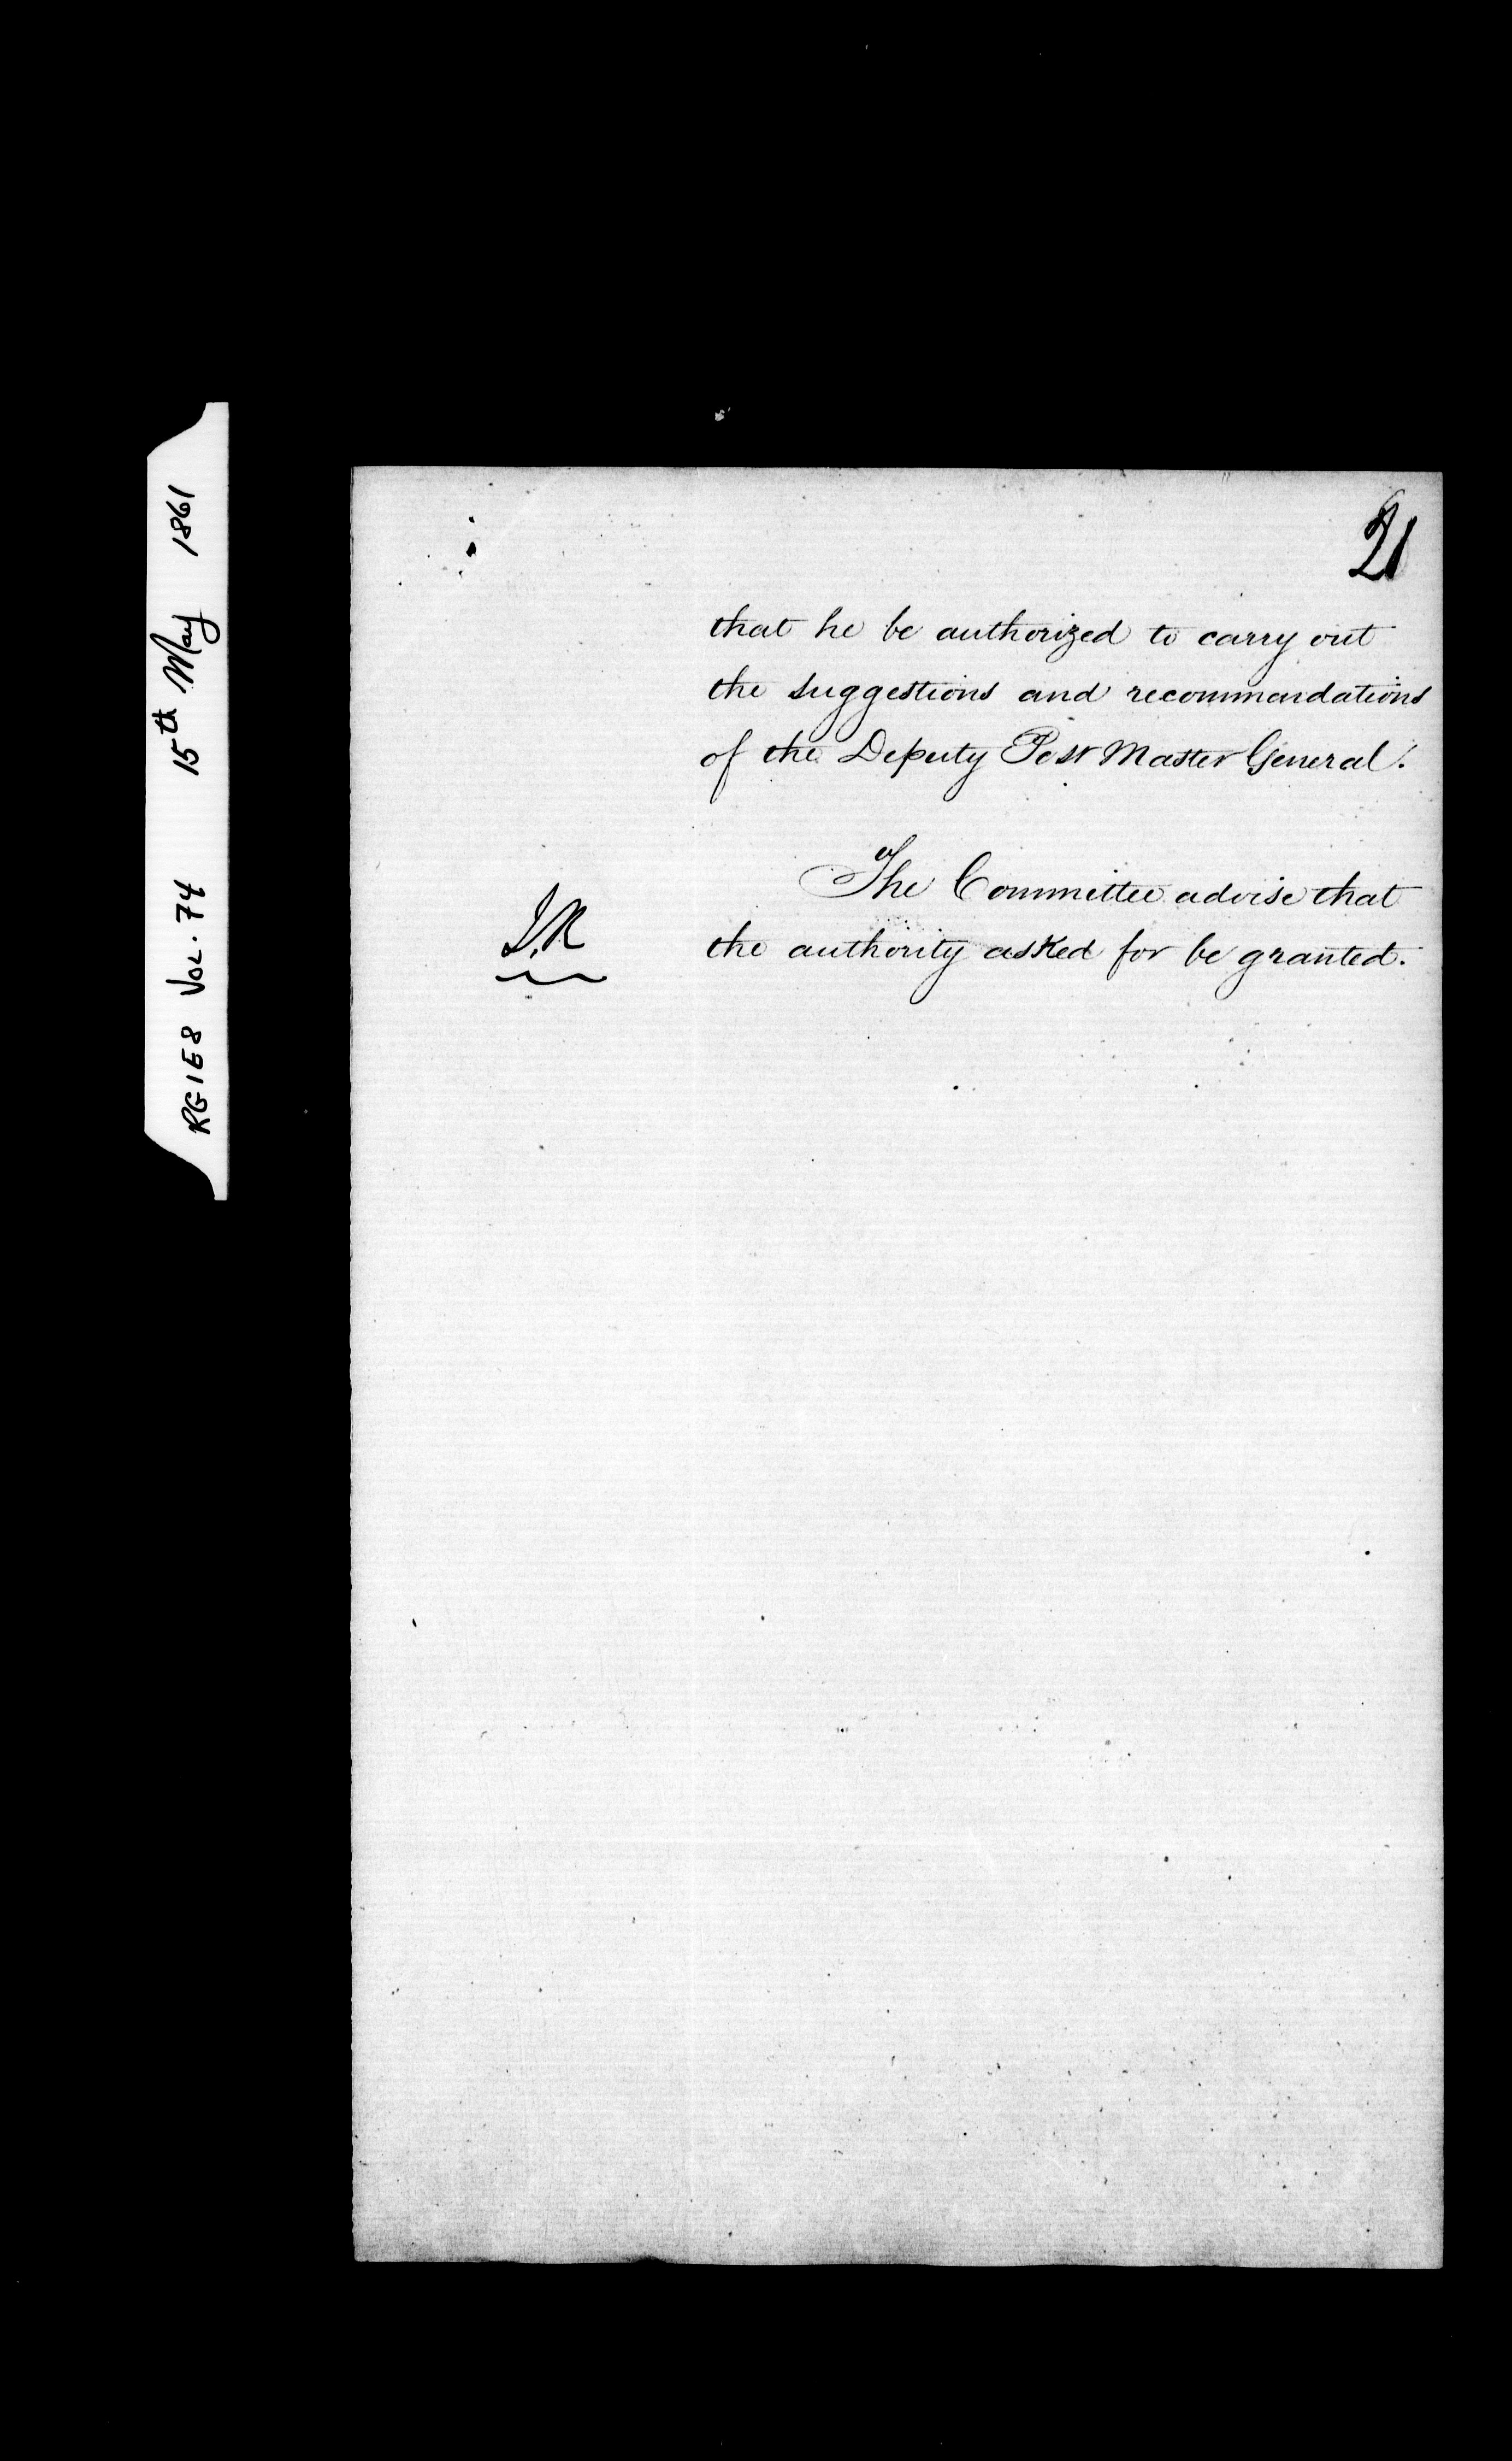 RG1E8 VOL. 74 15th May 1861
21
that he be authorized to carry out
the suggestions and recommendations
of the Deputy Post Master General.
The Committee advise that
the authority asked for be granted.